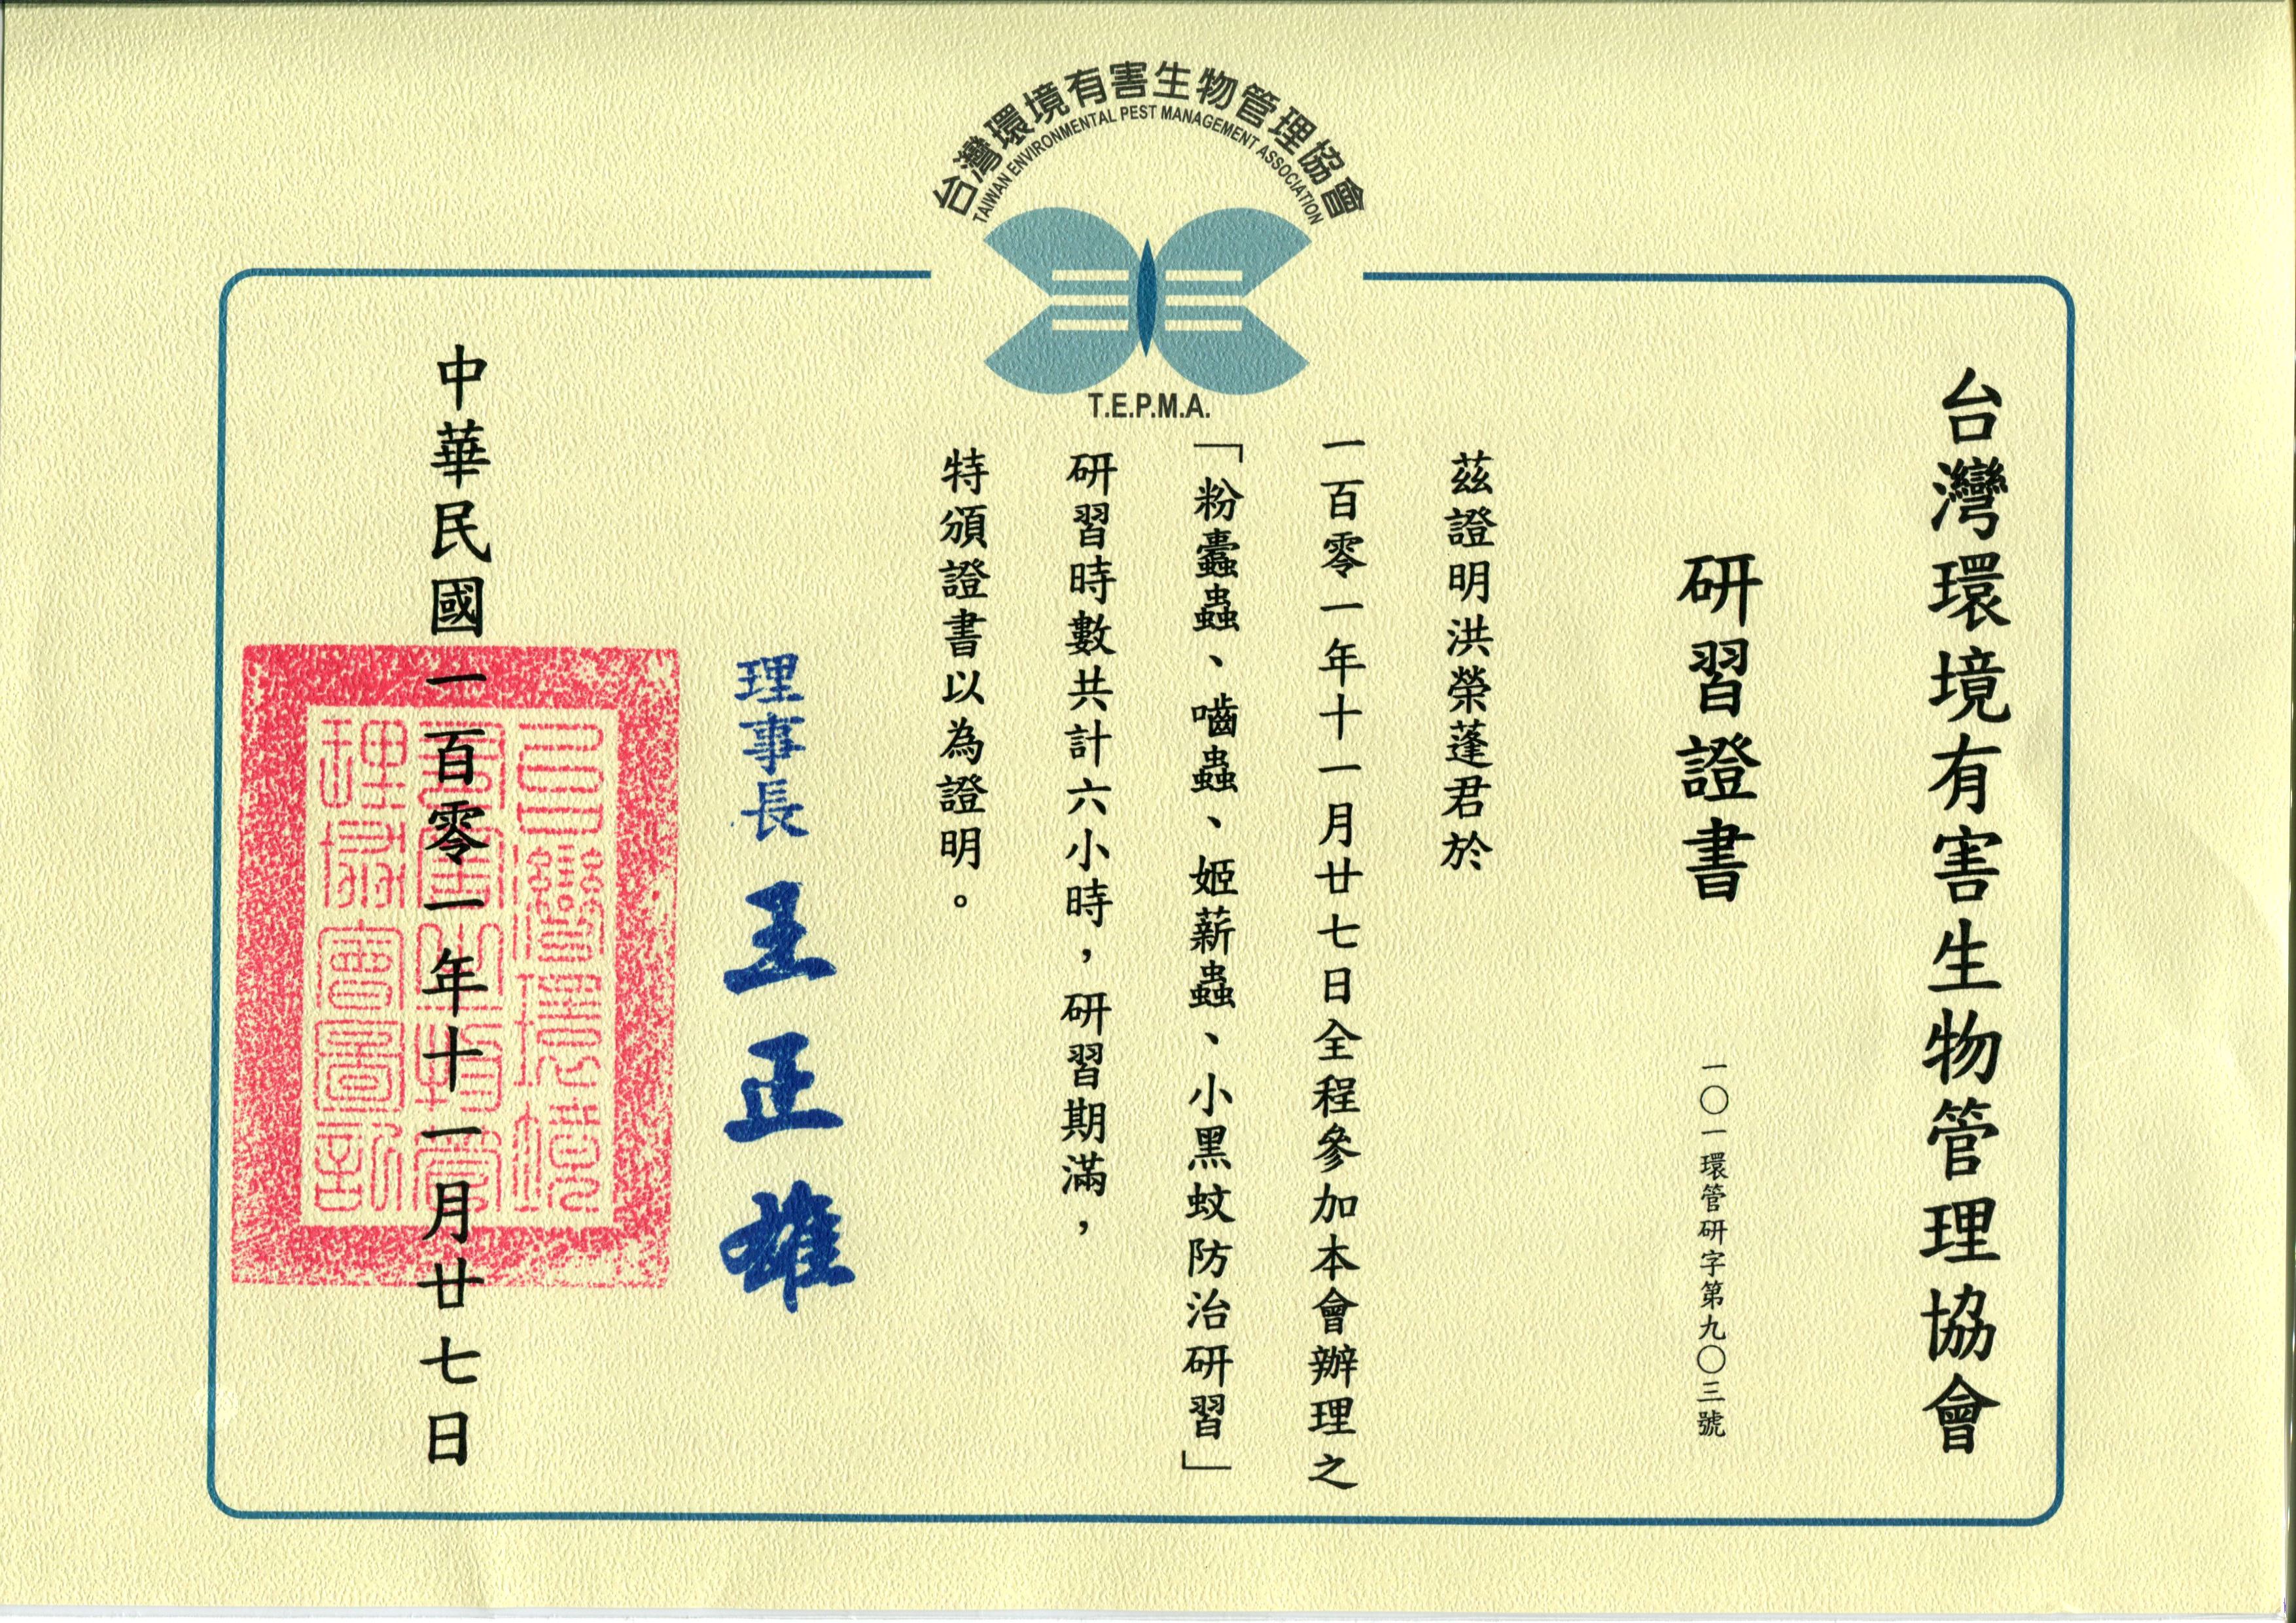 台灣環境有害生物管理協會
TAIWAN ENVIRONMENTAL PEST MANAGEMENT ASSOCIATION
T.E.P.M.A.
台灣環境有害生物管理協會
研習證書
一〇一環管研字第九〇三號
茲證明洪榮蓬君於
一百零一年十一月廿七日全程參加本會辦理之
「粉蠹蟲、嚙蟲、姬薪蟲、小黑蚊防治研習」
研習時數共計六小時，研習期滿，
特頒證書以為證明。
理事長 王正雄
台灣環境有害生物管理協會圖記
中華民國一百零一年十一月廿七日